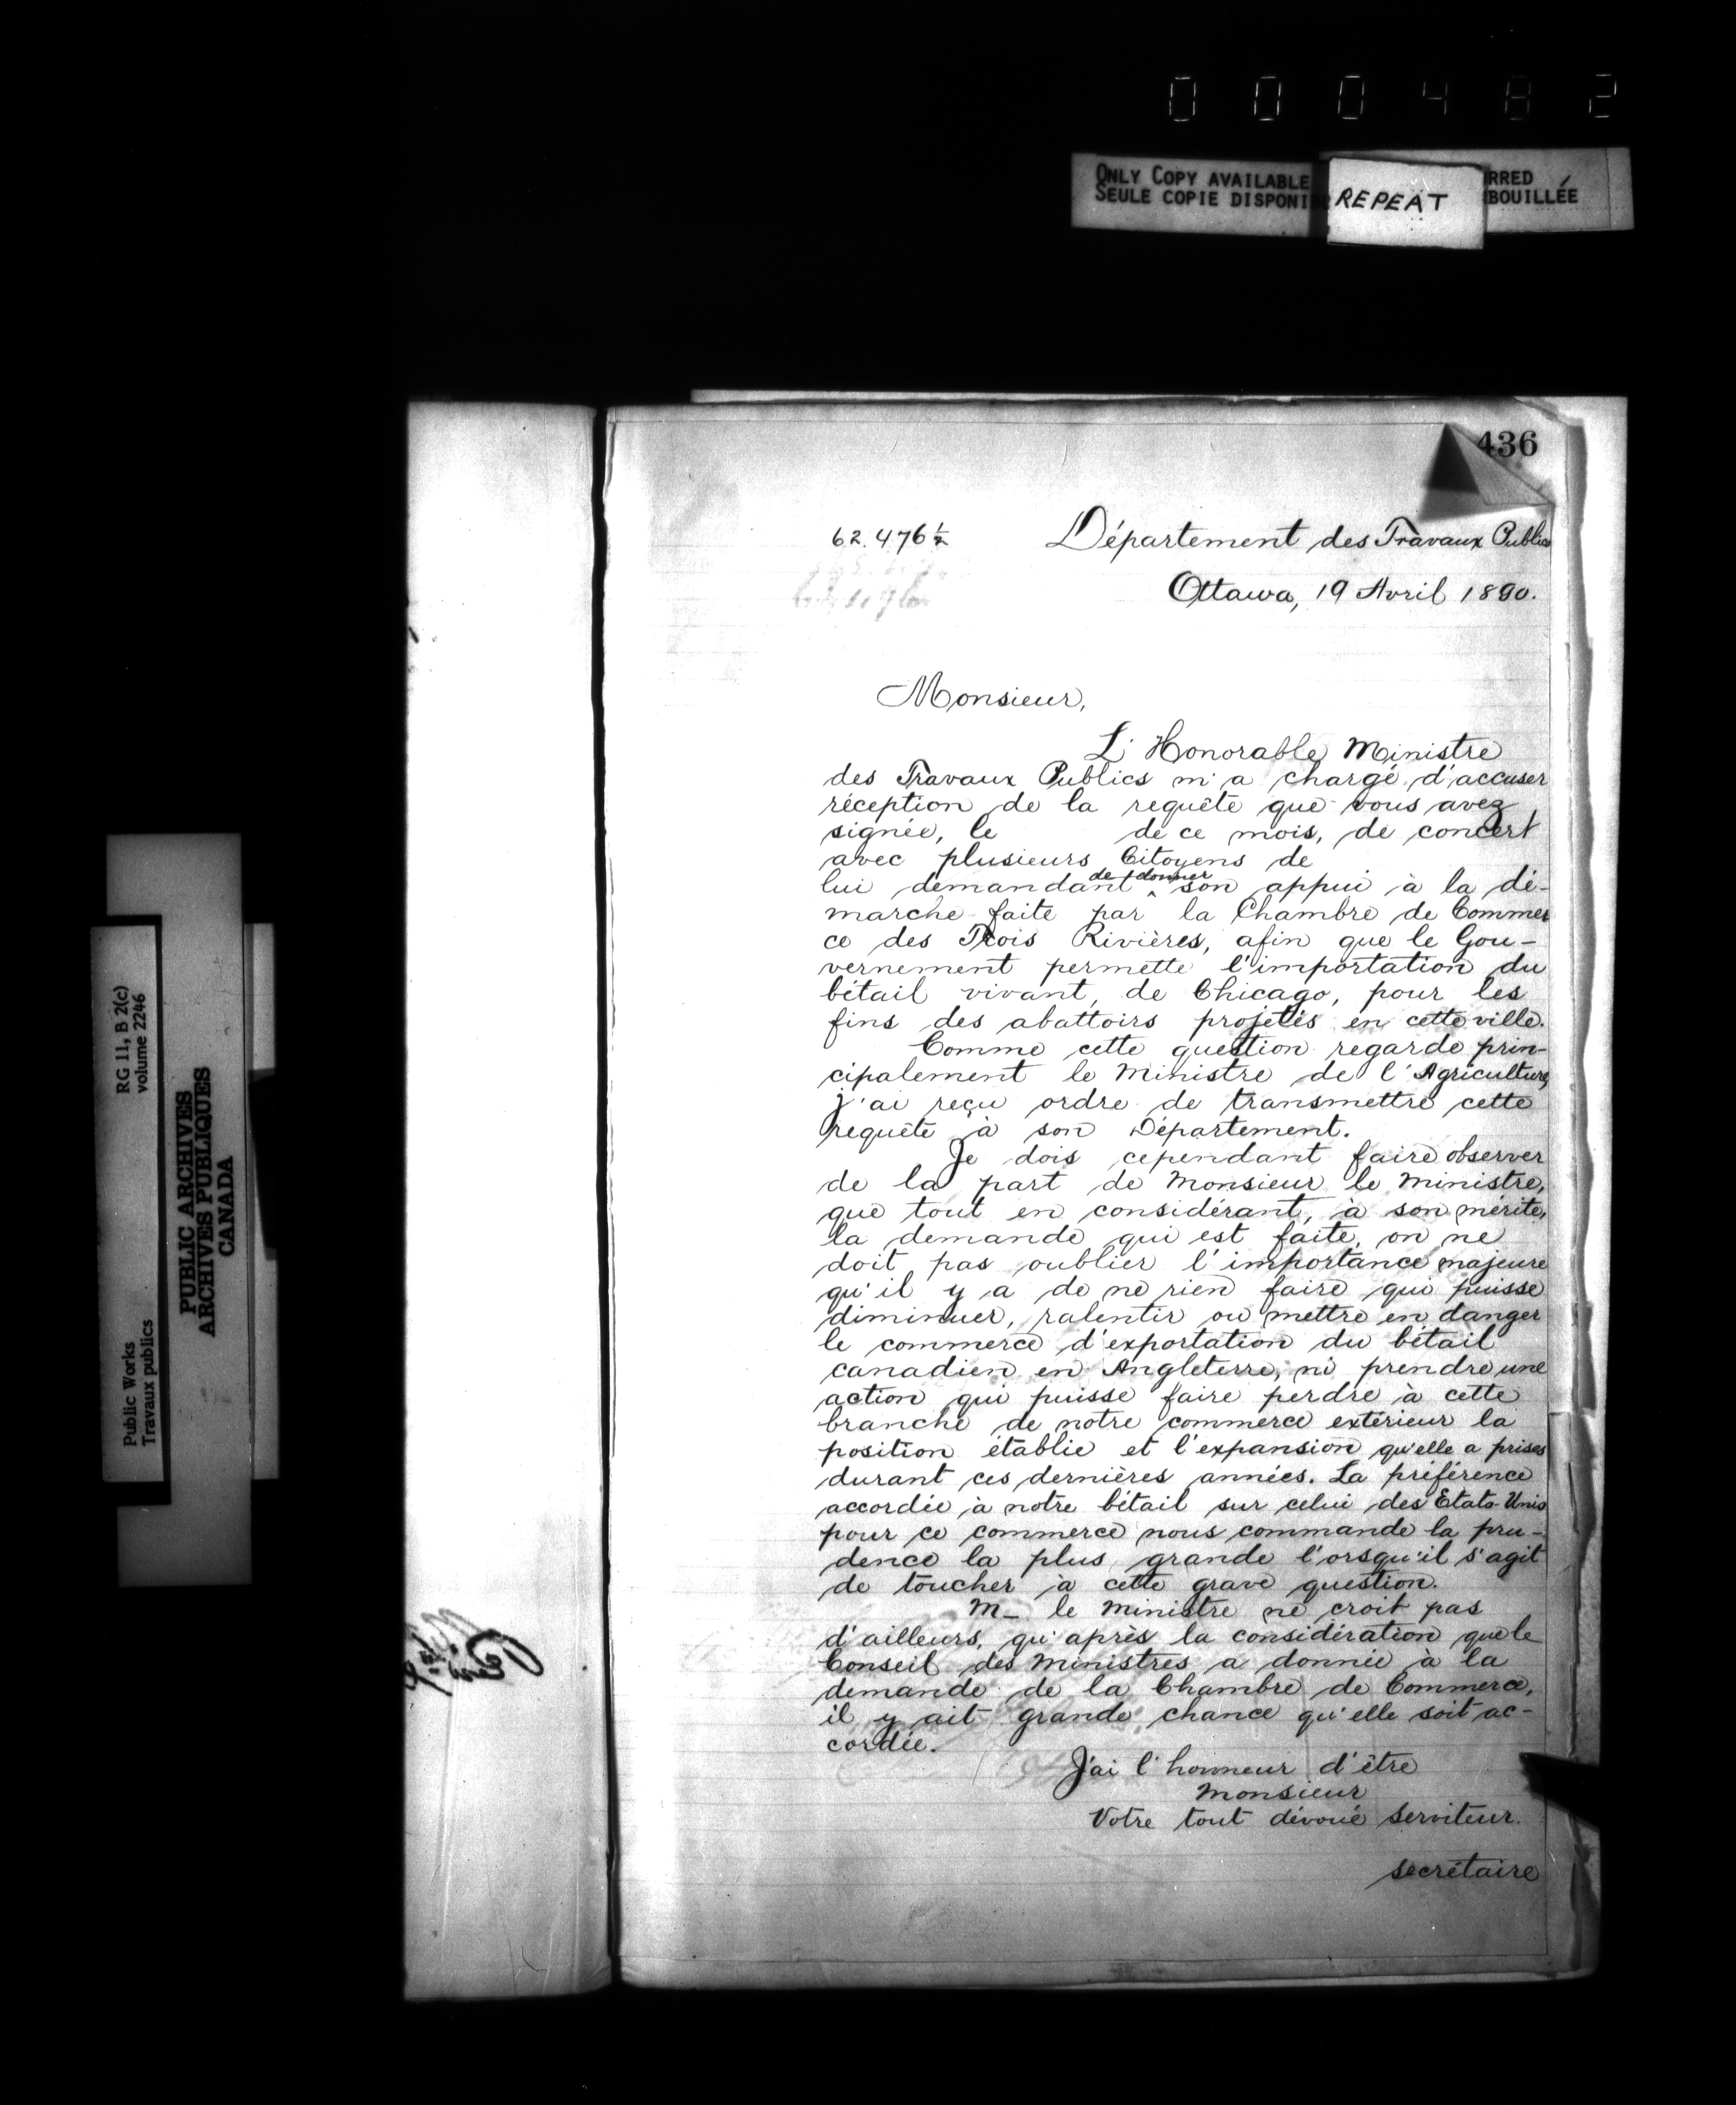 000482
ONLY COPY AVAILABLE
SEULE COPIE DISPONI
REPEAT
RRED
BOUILLÉE
436
62.476 1/2
Département des Travaux Publics
Ottawa, 19 Avril 1890.
Monsieur,
L'Honorable Ministre
des Travaux Publics m'a chargé d'accuser
réception de la requête que vous avez
signée, le de ce mois, de concert
avec plusieurs Citoyens de
de donner
lui demandant ^ son appui à la dé-
marche faite par la Chambre de Commer
ce des Trois Rivières, afin que le Gou-
vernement permette l'importation du
bétail vivant, de Chicago, pour les
fins des abattoirs projetés en cette ville.
Comme cette question regarde prin-
cipalement le Ministre de l'Agriculture,
j'ai reçu ordre de transmettre cette
requête à son Département.
Je dois cependant faire observer
de la part de Monsieur le Ministre,
que tout en considérant, à son mérite,
la demande qui est faite, on ne
doit pas oublier l'importance majeure
qu'il y a de ne rien faire qui puisse
diminuer, ralentir ou mettre en danger
le commerce d'exportation du bétail
canadien en Angleterre, ni prendre une
action qui puisse faire perdre à cette
branche de notre commerce extérieur la
position établie et l'expansion qu'elle a prises
durant ces dernières années. La préférence
accordée à notre bétail sur celui des Etats-Unis
pour ce commerce nous commande la pru-
dence la plus grande l'orsqu'il s'agit
de toucher à cette grave question.
M- le Ministre ne croit pas
d'ailleurs, qu'après la considération que le
Conseil des Ministres a donnée à la
demande de la Chambre de Commerce,
il y ait grande chance qu'elle soit ac-
cordée.
J'ai l'honneur d'être
Monsieur
Votre tout dévoué serviteur.
secrétaire
RG 11, B 2(c)
volume 2246
Public Works
Travaux publics
PUBLIC ARCHIVES
ARCHIVES PUBLIQUES
CANADA